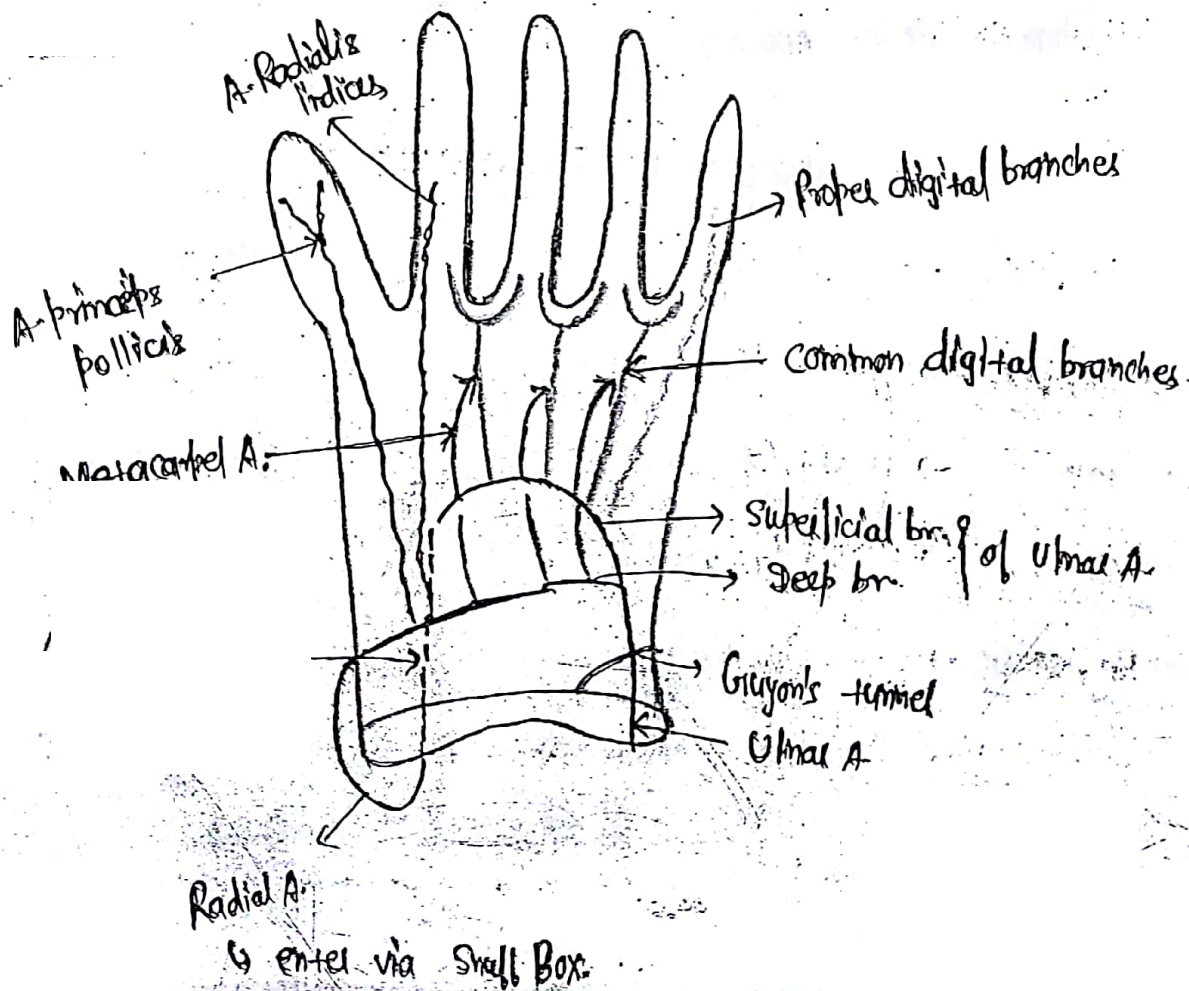 A. Radialis
indices
Proper digital branches
A. princeps
pollicis
common digital branches
Metacarpel A.
Superficial br. } of Ulnar A.
Deep br.
Guyon's tunnel
Ulnar A
Radial A.
↳ enter via Snuff Box.